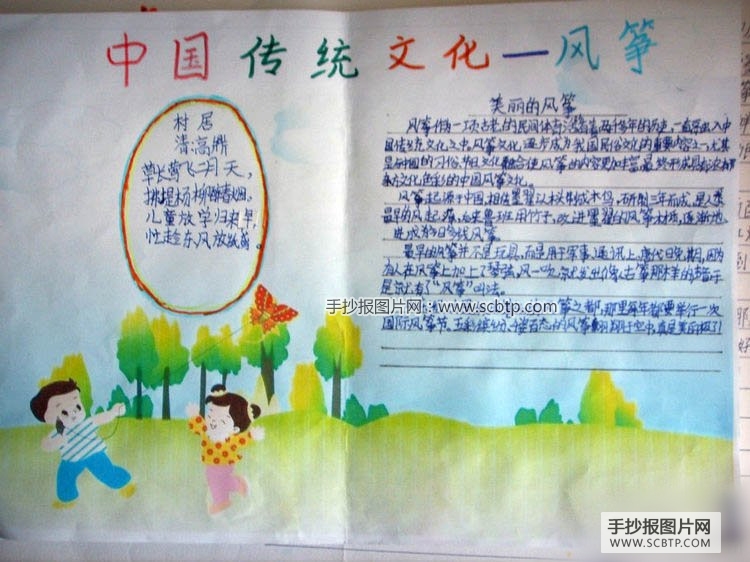 中国传统文化—风筝
村居
清·高鼎
草长莺飞二月天,
拂堤杨柳醉春烟。
儿童放学归来早,
忙趁东风放纸鸢。
美丽的风筝
风筝作为一项古老的民间体育活动有两千多年的历史,一直
国传统文化之中,风筝文化逐步成为我国民俗文化的重要内容之一,尤其
是与中国的习俗、节日文化融合使风筝的内容更加丰富,最终形成具有浓郁
东方文化色彩的中国风筝文化。
风筝起源于中国,相传墨翟以木头制成木鸟,研制三年而成,是人类
最早的风筝起源。后来鲁班用竹子,改进墨翟的风筝材质,逐渐地
进成为今日多线风筝。
最早的风筝并不是玩具,而是用于军事、通讯上,唐代日晚期,因为
有人在风筝上加上了琴弦,风一吹,就发出像古筝那样的声音于
是就有了"风筝"叫法。
筝之都,那里每年都要举行一次
国际风筝节,五彩缤纷、千姿百态的风筝翱翔于空中,真是美丽极了!
手抄报图片网:www.scbtp.com
手抄报图片网
WWW.SCBTP.COM